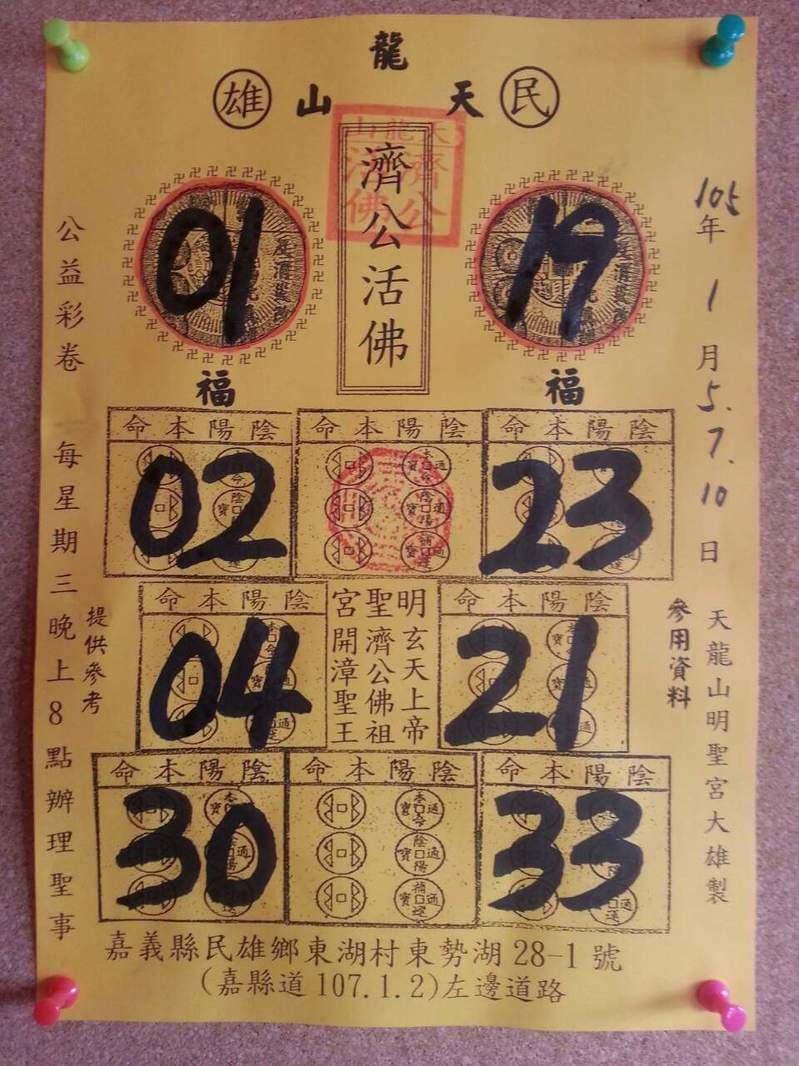 龍
雄 山 天 民
濟公活佛
天龍山
濟公
活佛
01
19
福
福
105年1月5.7.10日
公益彩卷 每星期三晚上8點辦理聖事
提供參考
參用資料
天龍山明聖宮大雄製
命本陽陰
命本陽陰
命本陽陰
02
23
命本陽陰
命本陽陰
04
21
明玄天上帝
聖濟公佛祖
宮開漳聖王
命本陽陰
命本陽陰
命本陽陰
30
33
嘉義縣民雄鄉東湖村東勢湖28-1號
(嘉縣道107.1.2)左邊道路